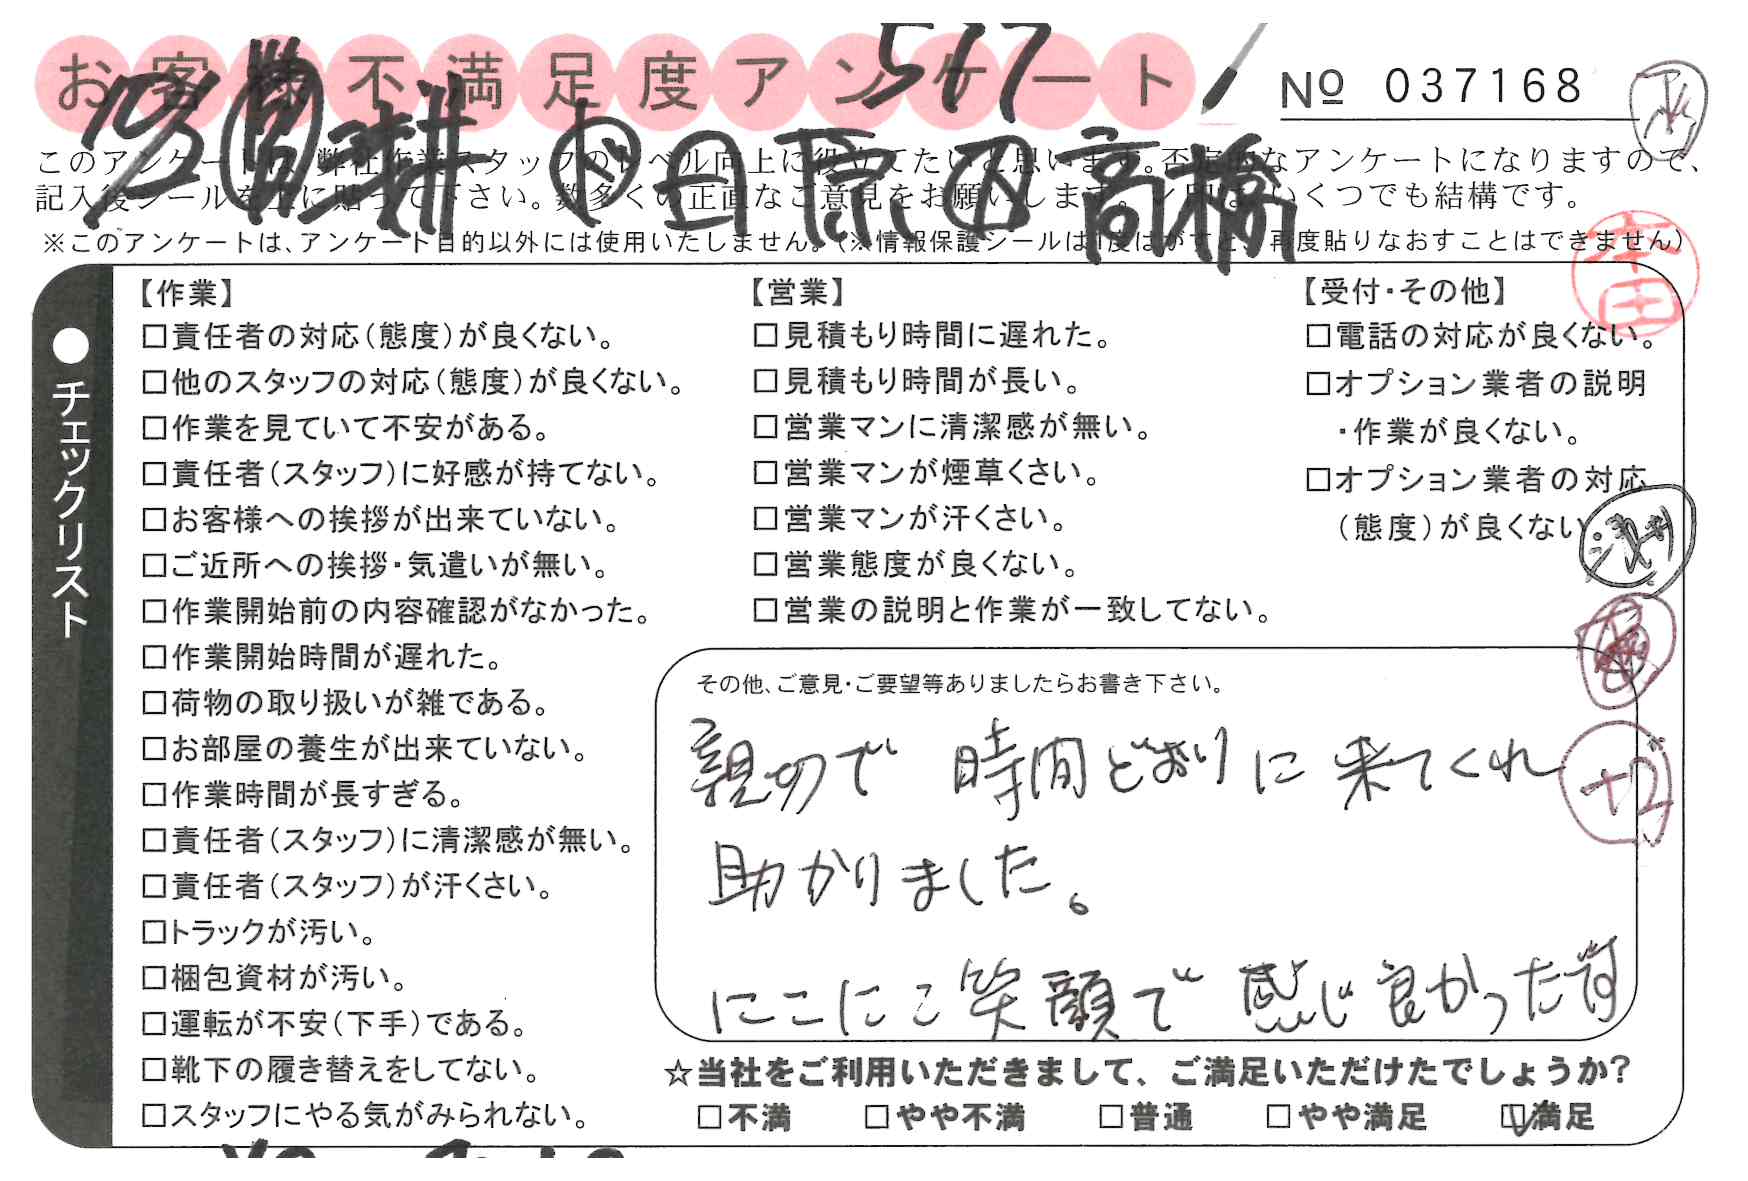 お客様不満足度アンケート
517
№ 037168
耕 田原 高橋
このアンケートは、弊社作業スタッフのレベル向上に役立てたいと思います。否定的なアンケートになりますので、
記入後シールを上に貼って下さい。数多くの正直なご意見をお願いします。レ印は、いくつでも結構です。
※このアンケートは、アンケート目的以外には使用いたしません。(※情報保護シールは1度はがすと、再度貼りなおすことはできません)
本田
●チェックリスト
【作業】
□責任者の対応(態度)が良くない。
□他のスタッフの対応(態度)が良くない。
□作業を見ていて不安がある。
□責任者(スタッフ)に好感が持てない。
□お客様への挨拶が出来ていない。
□ご近所への挨拶・気遣いが無い。
□作業開始前の内容確認がなかった。
□作業開始時間が遅れた。
□荷物の取り扱いが雑である。
□お部屋の養生が出来ていない。
□作業時間が長すぎる。
□責任者(スタッフ)に清潔感が無い。
□責任者(スタッフ)が汗くさい。
□トラックが汚い。
□梱包資材が汚い。
□運転が不安(下手)である。
□靴下の履き替えをしてない。
□スタッフにやる気がみられない。
【営業】
□見積もり時間に遅れた。
□見積もり時間が長い。
□営業マンに清潔感が無い。
□営業マンが煙草くさい。
□営業マンが汗くさい。
□営業態度が良くない。
□営業の説明と作業が一致してない。
【受付・その他】
□電話の対応が良くない。
□オプション業者の説明
・作業が良くない。
□オプション業者の対応
(態度)が良くない
その他、ご意見・ご要望等ありましたらお書き下さい。
親切で 時間どおりに 来てくれ
助かりました。
にこにこ笑顔で 感じ良かったす
☆当社をご利用いただきまして、ご満足いただけたでしょうか?
□不満 □やや不満 □普通 □やや満足 ☑満足